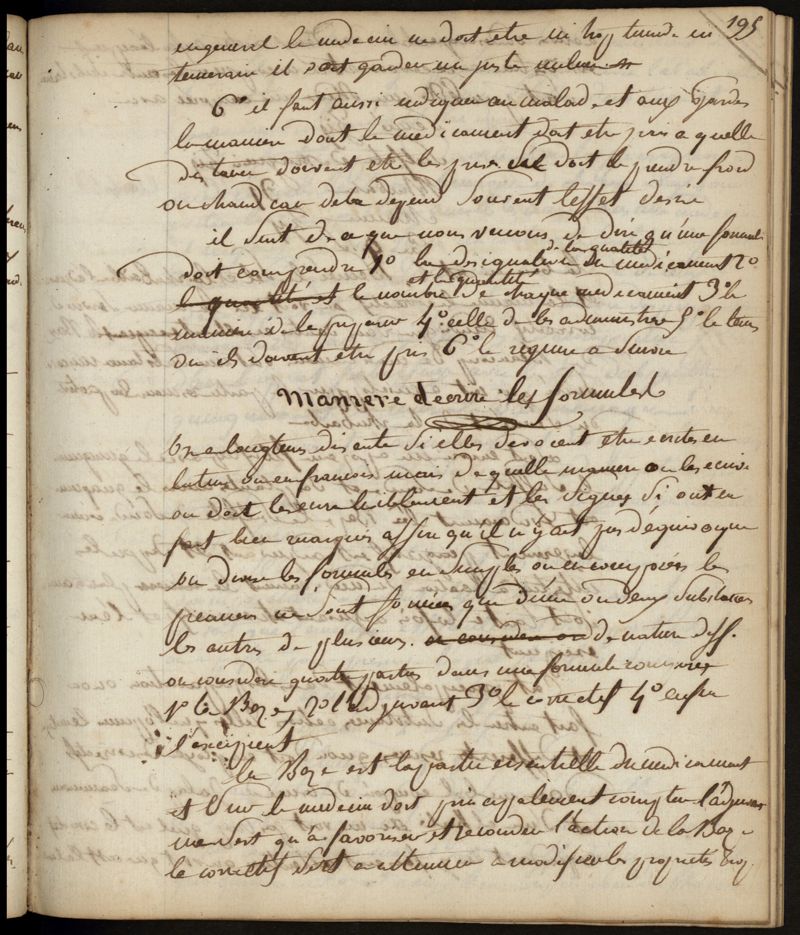 195
en general le medecin ne doit etre ni trop timide ni
temeraire il doit garder un juste milieu
6° il faut aussi indiquer au malade et aux gardes
la maniere dont le medicament doit etre pris a quelle
distance doivent etre les prises s'il doit le prendre froid
ou chaud car de la depend souvent l'effet desiré
il suit de ce que nous venons de dire qu'une formule
de la qualité
doit comprendre 1° la designation du medicament 2°
et la quantité
la qualité et le nombre de chaque medicament 3° la
maniere de le preparer 4° celle de les administrer 5° le tems
ou ils doivent etre pris 6° le regime a suivre
Maniere d'ecrire les formules
On a longtems disputé si elles devoient etre ecrites en
latin ou en francois mais de quelle maniere on les ecrive
on doit les ecrire lisiblement et les signes si on en
fait bien marqués affin qu'il n'y ait pas d'equivoque
on divise les formules en simples ou en composées les
premieres ne sont formées que d'une ou deux substances
les autres de plusieurs. de nature diff.
on considere quatre parties dans une formule
1° la Baze, 2° l'adjuvant 3° le correctif 4° enfin
l'excipient
la Baze est la partie essentielle du medicament
et sur le medecin doit principalement compter l'adjuvant
ne sert qu'a favoriser et seconder l'action de la Baze
le correctif sert a attenuer a modifier les proprietés trop